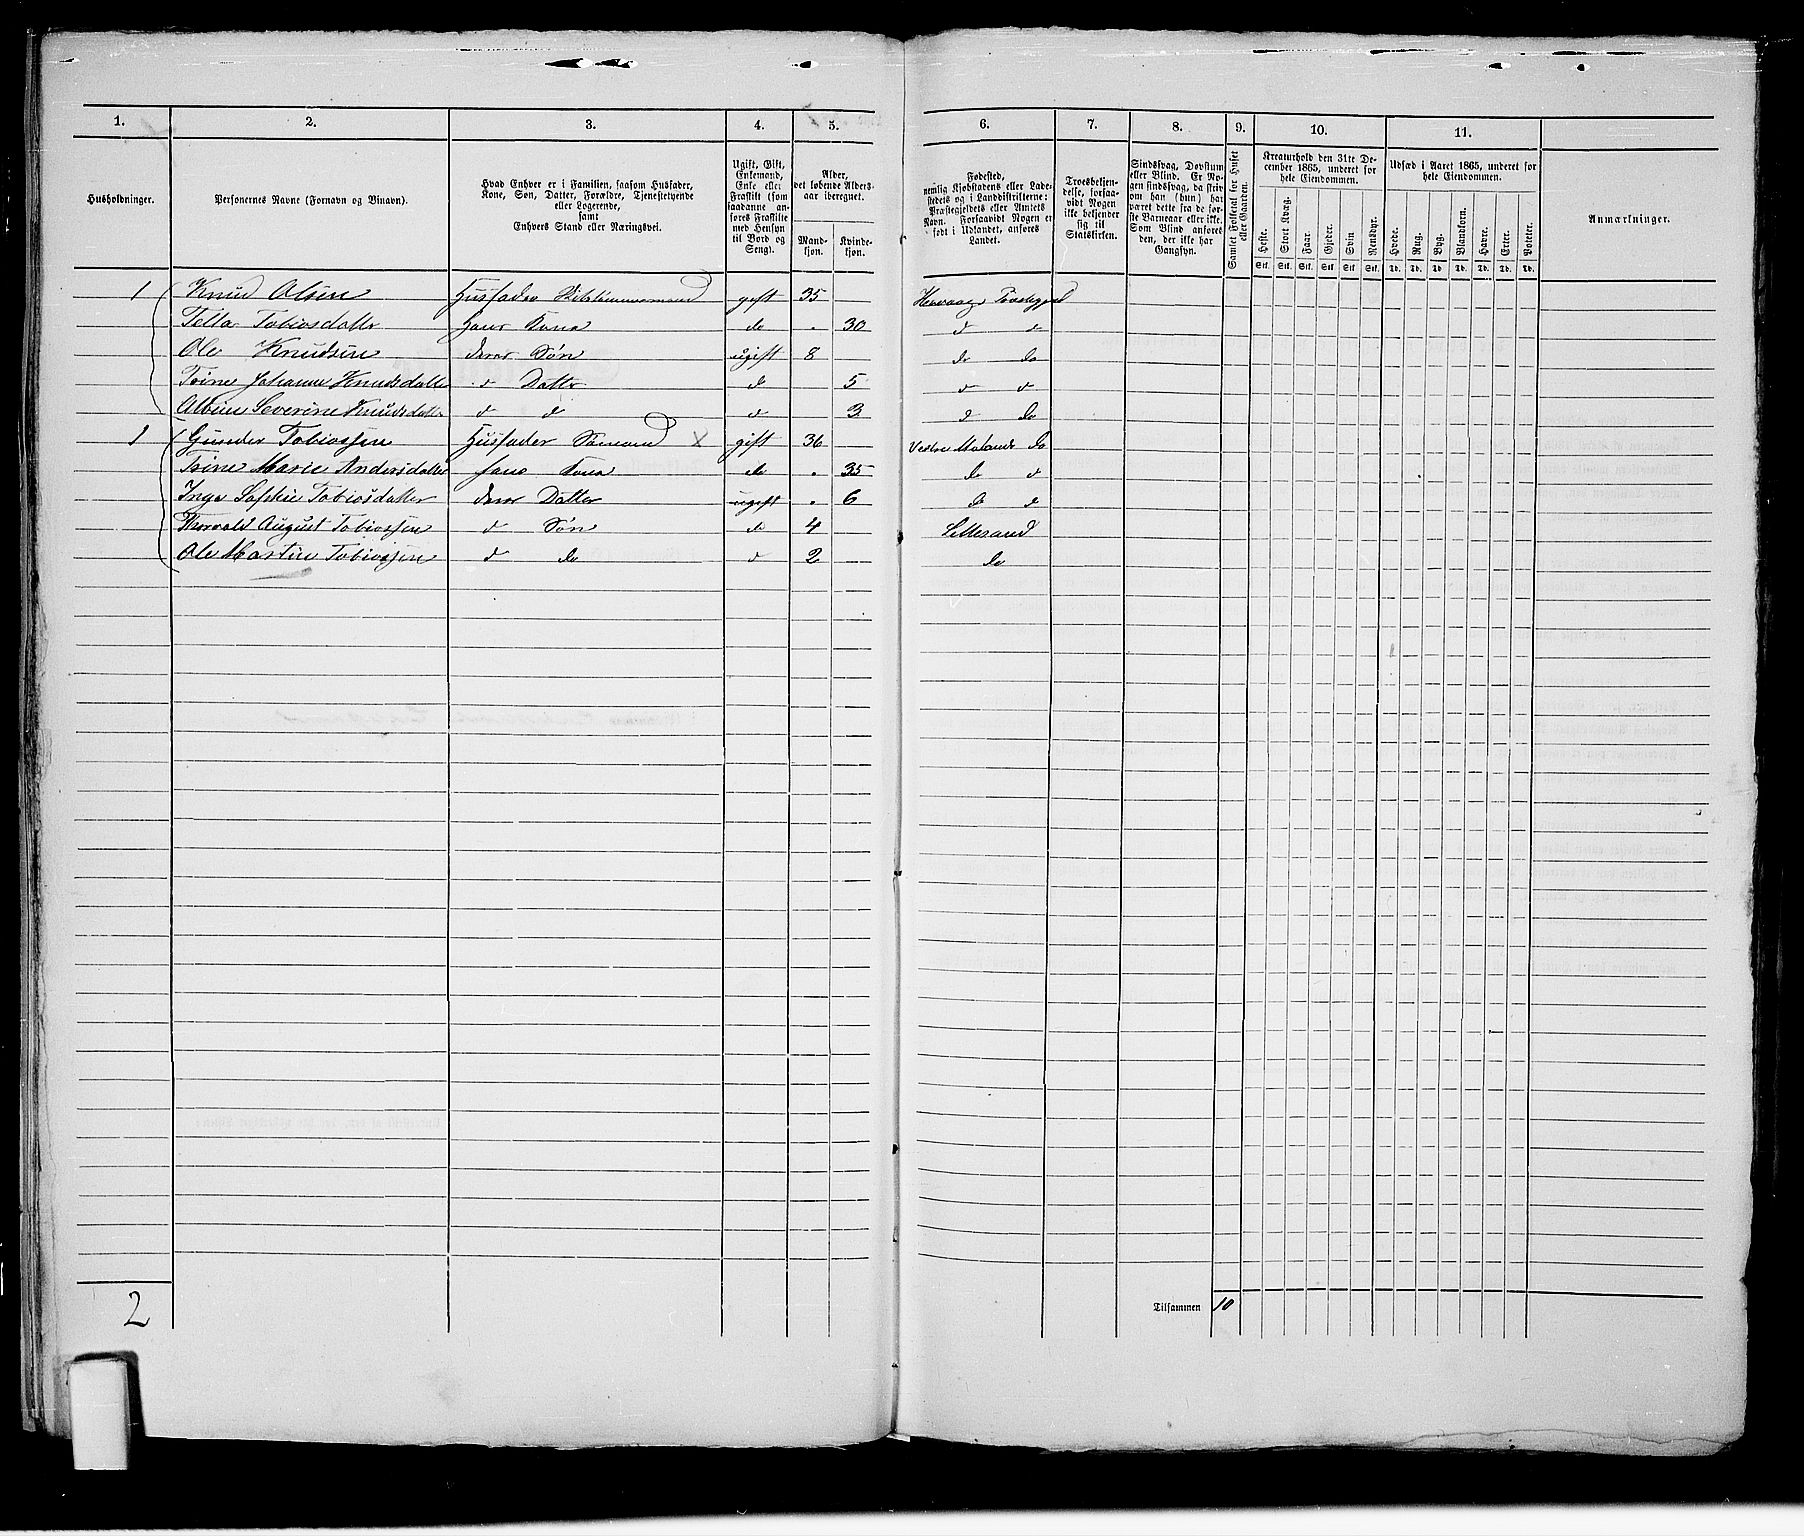 1. 2. 3. 4. 5. 6. 7. 8. 9. 10. 11.
Husholdninger.
Personernes Navne (Fornavn og Binavn).
Hvad Enhver er i Familien, saasom Husfader,
Kone, Søn, Datter, Forældre, Tjenestetyende
eller Logerende,
samt
Enhvers Stand eller Næringsvei.
Ugift, Gift,
Enkemand,
Enke eller
Fraskilt (som
saadanne an-
føres Fraskilte
med Hensyn
til Bord og
Seng).
Alder,
det løbende Alders-
aar iberegnet.
Mand-
kjøn.
Kvinde-
kjøn.
Fødested,
nemlig Kjøbstadens eller Lade-
stedets og i Landdistrikterne:
Præstegjeldets eller Amtets
Navn. Forsaavidt Nogen er
født i Udlandet, anføres
Landet.
Troesbekjen-
delse, forsaa-
vidt Nogen
ikke bekjender
sig til
Statskirken.
Sindssvag, Døvstum
eller Blind. Er No-
gen sindssvag, da skriv
om han (hun) har
været dette fra de før-
ste Barneaar eller ikke.
Som Blind anføres
den, der ikke har
Gangsyn.
Samlet Folketal for Huset
eller Gaarden.
Kreaturhold den 31te De-
cember 1865, underet for
hele Eiendommen.
Heste. Stort Kvæg. Faar. Gjeder. Svin Rensdyr.
Stk. Stk. Stk. Stk Stk Stk.
Udsæd i Aaret 1865, underet for
hele Eiendommen.
Hvede. Rug. Byg. Blandkorn. Havre. Erter. Poteter.
Td. Td. Td Td Td. Td. Td.
Anmærkninger.
1 Knud Olsen Husfader gift 35
Tella Tobiasdatter hans Kona do 30 d d
Ole Knudsen deres Søn ugift 8 do do
Trine Johanne Knudsdatter d Datter d 5 d d
Severine Knudsdatter d d d 3 d do
1 Gunder Tobiassen Husfader Sømand x gift 36 Vestre Molands do
Trine Marie Andersdatter hans Kona do 35 do d
Inge Sophie Tobiasdatter deres Datter ugift 6 do d
Thorvald August Tobiassen d Søn do 4 Lillesand
Ole Martin Tobiassen d do d 2 do
2
Tilsammen 10